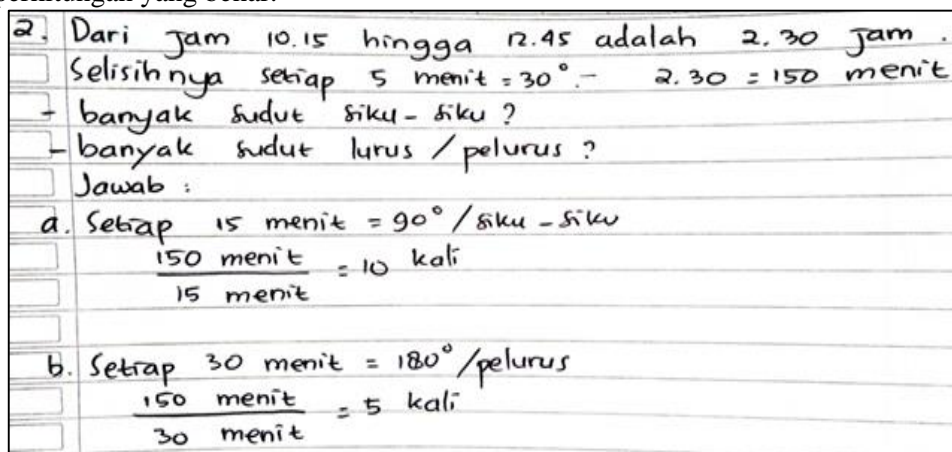 2. Dari jam 10.15 hingga 12.45 adalah 2.30 jam.
Selisihnya setiap 5 menit = 30°. - 2.30 = 150 menit
- banyak sudut siku-siku?
- banyak sudut lurus / pelurus?
Jawab :
a. Setiap 15 menit = 90° / siku-siku
150 menit
15 menit
= 10 kali
b. Setiap 30 menit = 180° / pelurus
150 menit
30 menit
= 5 kali